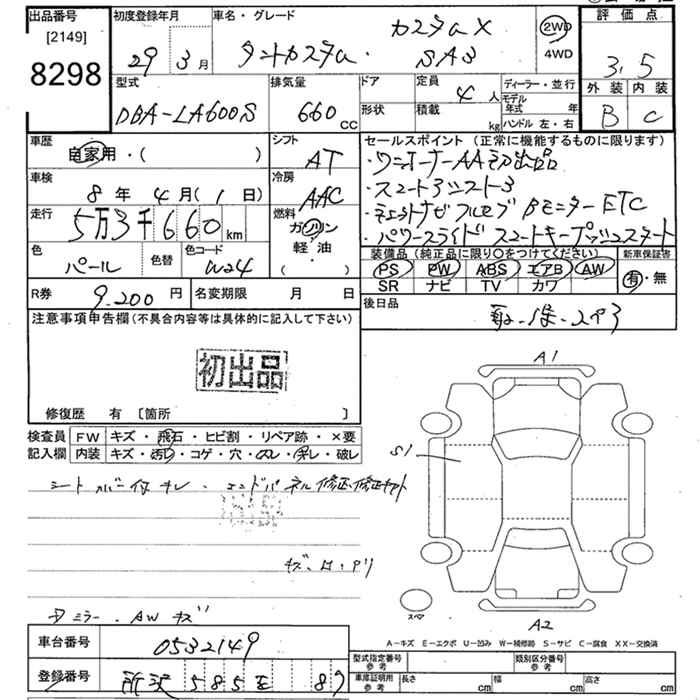 出品番号 初度登録年月 車名・グレード 評価点
[2149] カスタムX 2WD
8298 29 3月 タントカスタム SA3 4WD 3.5
型式 排気量 ドア 定員 ディーラー・並行 外装 内装
DBA-LA600S 660 CC 形状 積載 4人 kg モデル年式 年 ハンドル 左・右 B C
車歴 シフト セールスポイント (正常に機能するものに限ります)
自家用・( ) AT ・ワンオーナーAA初出品
車検 冷房 ・スマートアシスト3
8年 4月(1日) AAC
走行 燃料 ナビ フルセグ Bモニター ETC
5万3千660km ガソリン ・パワースライド スマートキープッシュスタート
色 色替 色コード 軽・油 装備品 (純品正に限り○をつけてください) 新車保証書
パール W24 ( ) PS PW ABS エアB AW 有・無
SR ナビ TV カワ
R券 9,200円 名変期限 月 日 後日品
注意事項申告欄(不具合内容等は具体的に記入して下さい) 取・保・スペア
初出品
修復歴 有 [箇所 ]
A1
検査員 FW キズ・飛石・ヒビ割・リペア跡・×要
記入欄 内装 キズ・汚れ・コゲ・穴・スレ・キレ・破レ
S1
シートカバー付 エンドパネル修正
スペア
A2
ミラー・AWキズ
A-キズ E-エクボ U-凹み W-補修跡 S-サビ C-腐食 XX-交換済
車台番号 0532149
型式指定番号 参考 類別区分番号 参考
登録番号 所沢 585 87
車庫証明用 参考 長さ cm 幅 cm 高さ cm